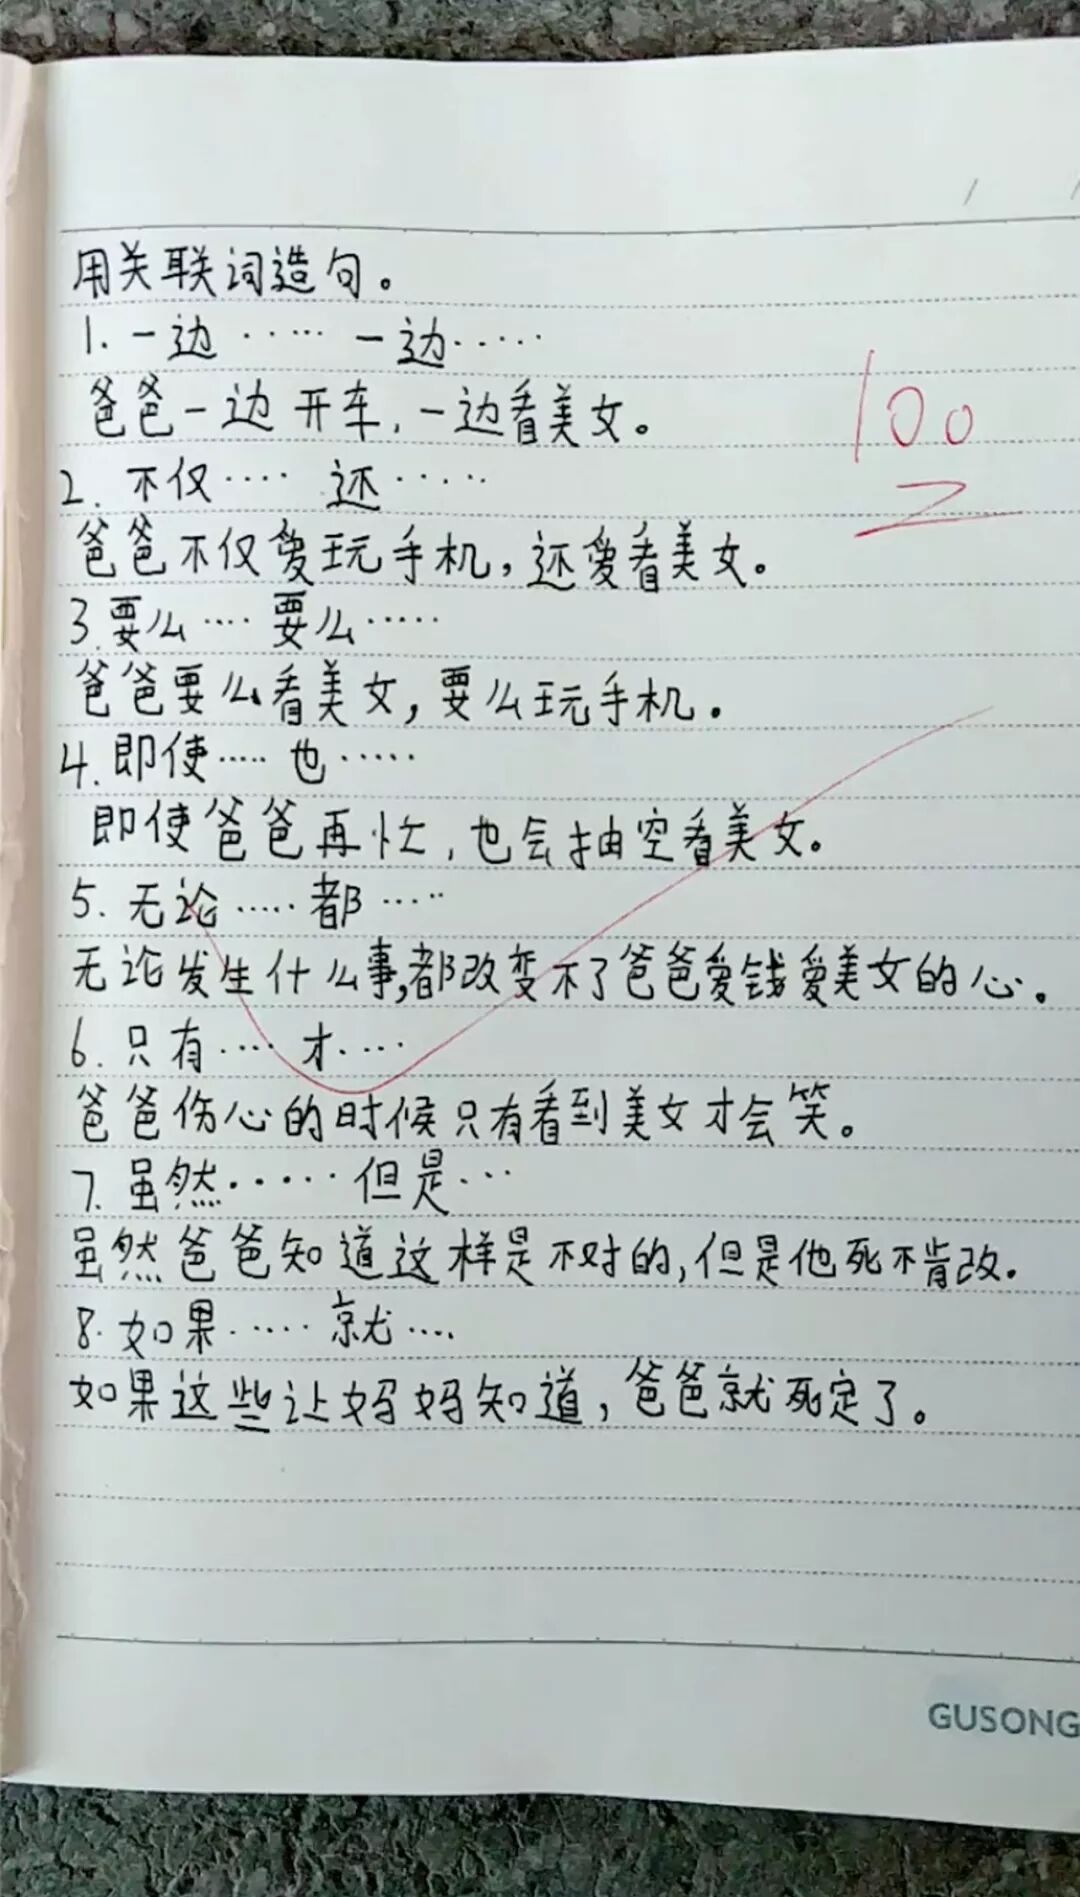 用关联词造句。
1. 一边 ····· 一边·····
爸爸一边开车,一边看美女。
100
2. 不仅···· 还·····
爸爸不仅爱玩手机,还爱看美女。
3.要么···· 要么·····
爸爸要么看美女,要么玩手机。
4.即使····· 也·····
即使爸爸再忙,也会抽空看美女。
5. 无论····· 都·····
无论发生什么事,都改变不了爸爸爱钱爱美女的心。
6. 只有···· 才····
爸爸伤心的时候只有看到美女才会笑。
7. 虽然····· 但是···
虽然爸爸知道这样是不对的,但是他死不肯改。
8. 如果····· 就····
如果这些让妈妈知道,爸爸就死定了。
GUSONG